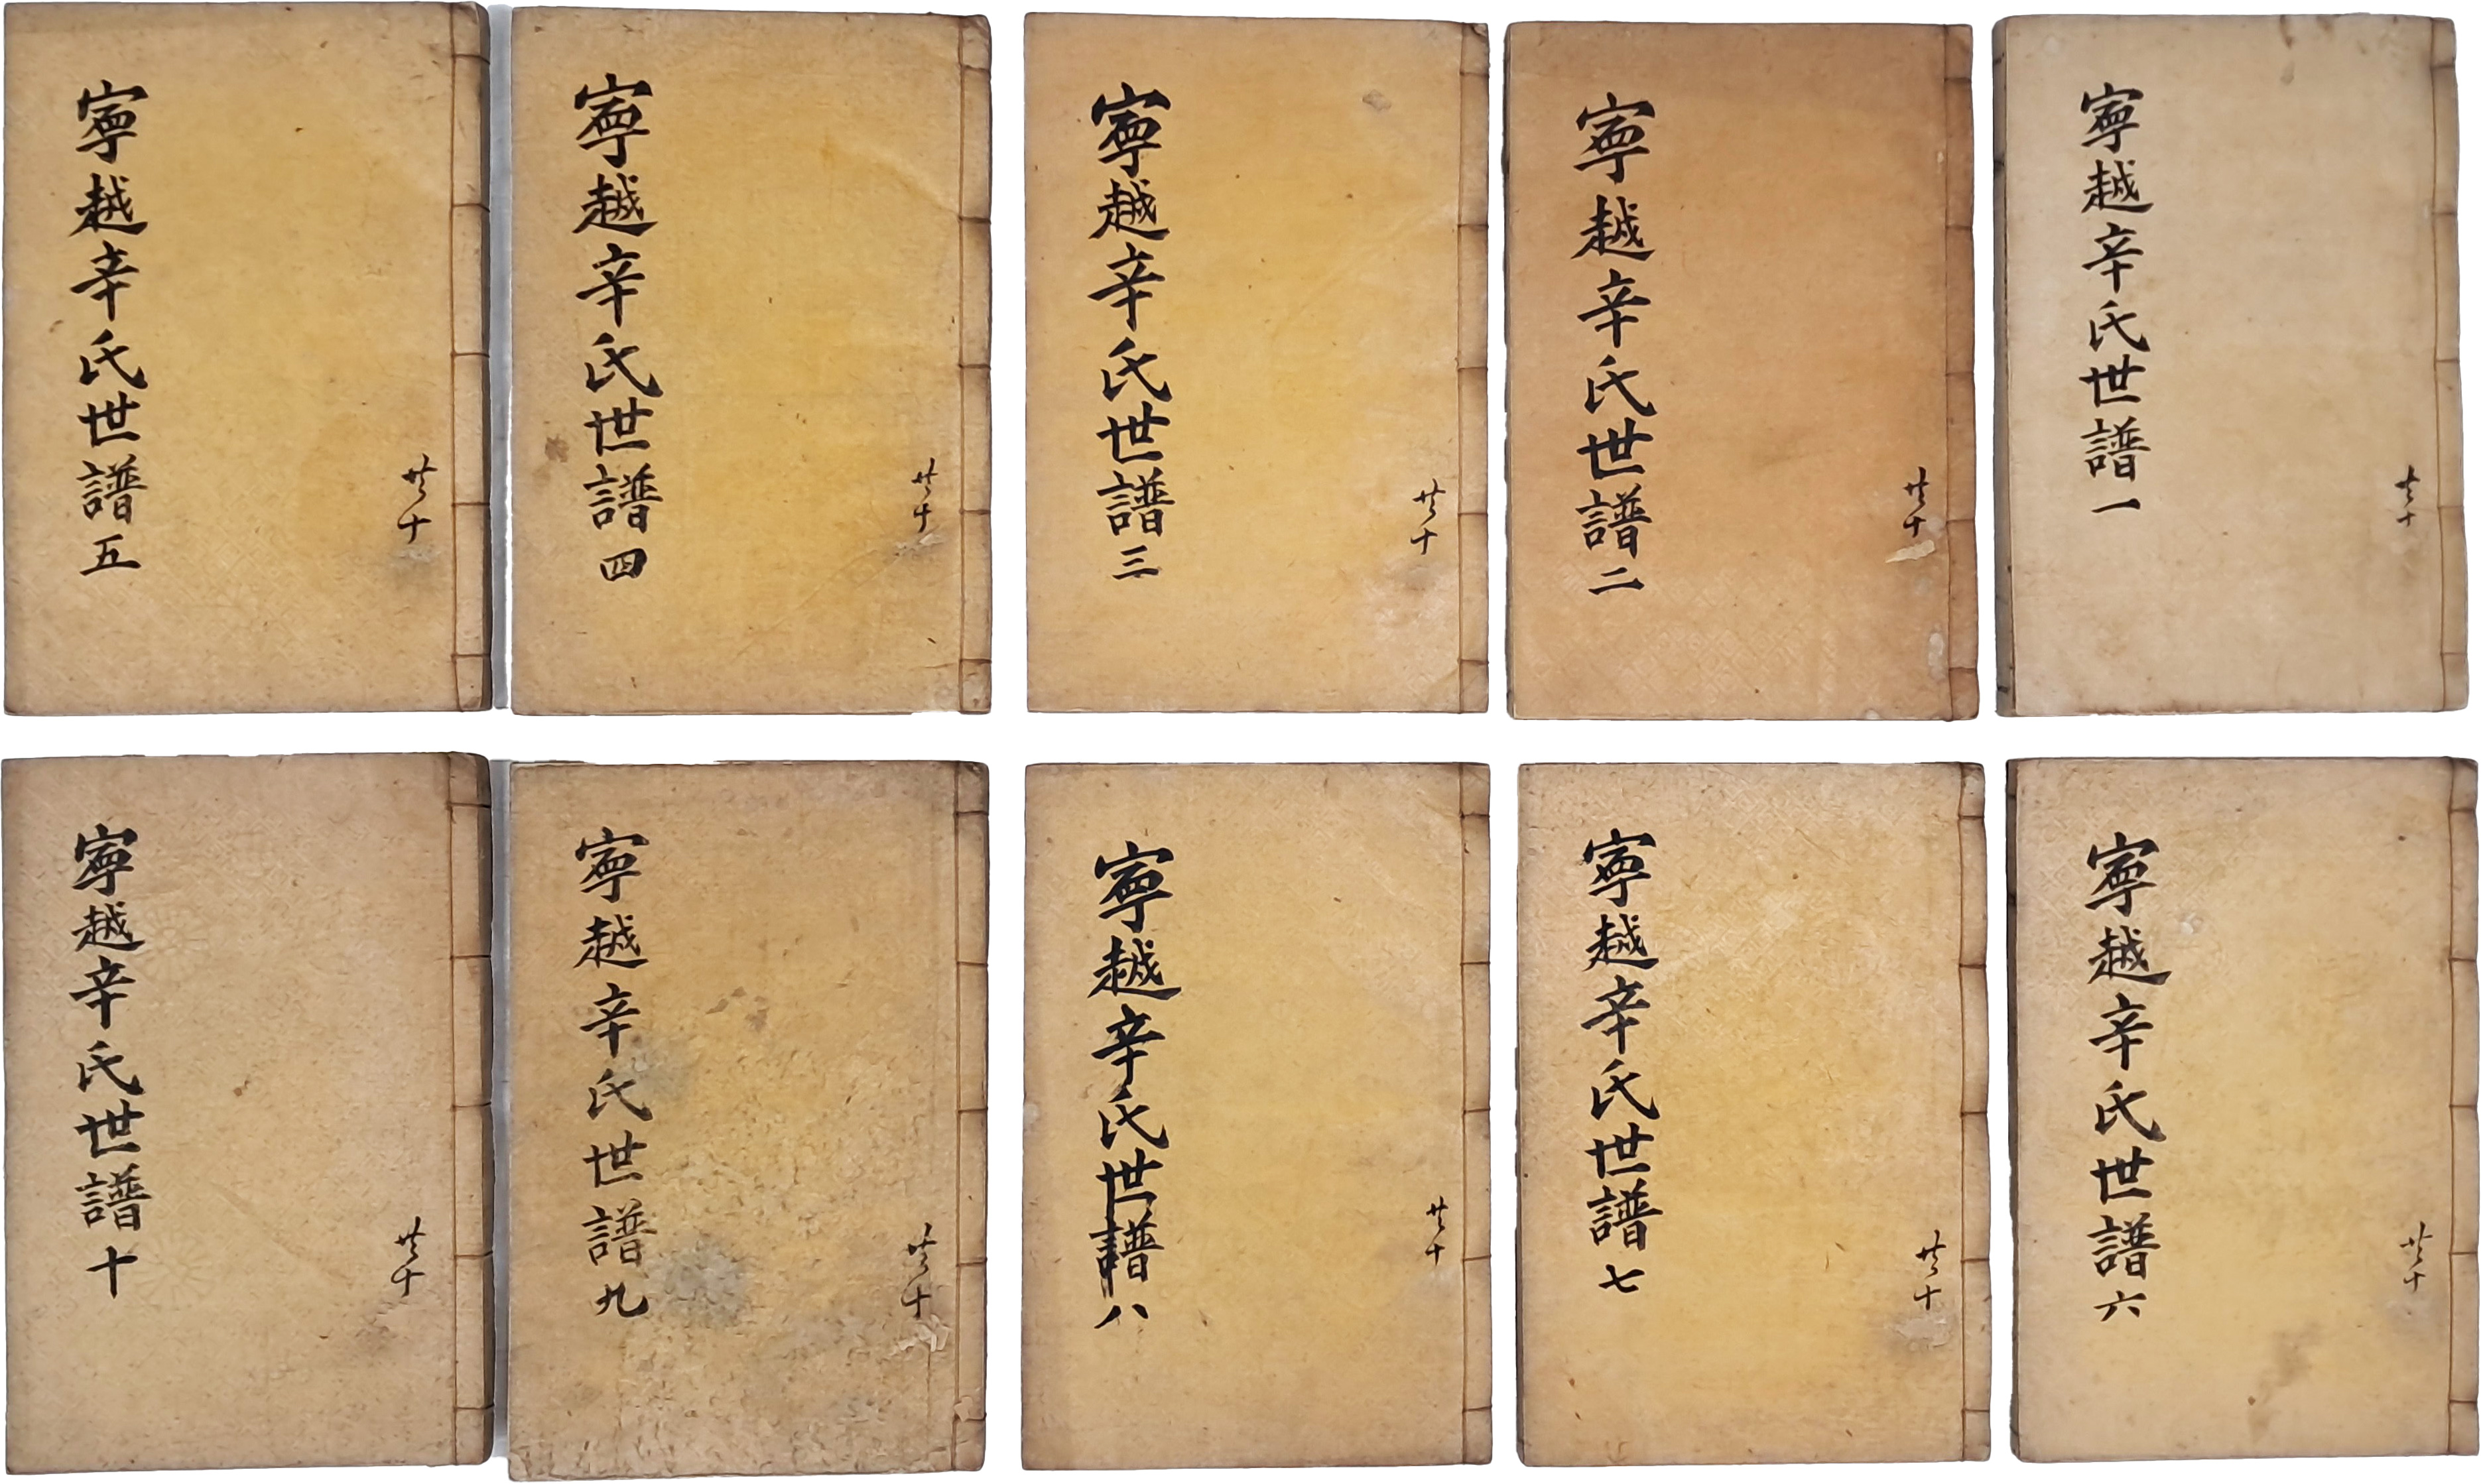 寧越辛氏世譜一
共十
寧越辛氏世譜二
共十
寧越辛氏世譜三
共十
寧越辛氏世譜四
共十
寧越辛氏世譜五
共十
寧越辛氏世譜六
共十
寧越辛氏世譜七
共十
寧越辛氏世譜八
共十
寧越辛氏世譜九
共十
寧越辛氏世譜十
共十